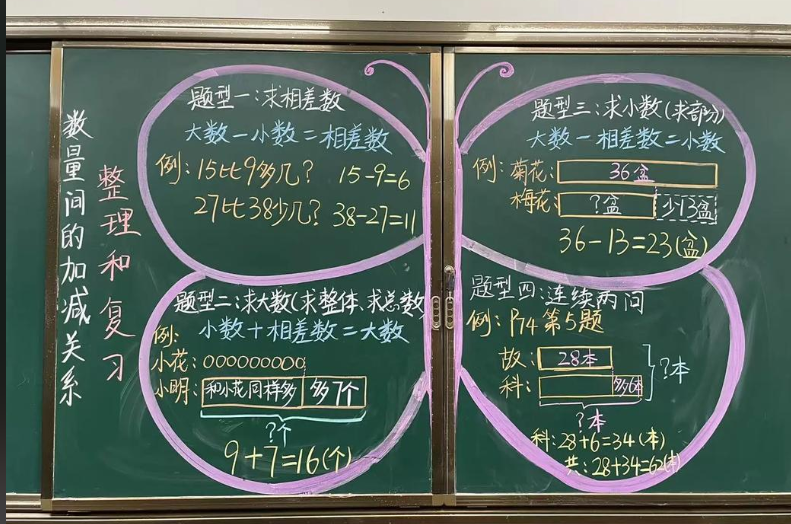 数量间的加减关系
整理和复习
题型一:求相差数
大数-小数=相差数
例:15比9多几? 15-9=6
27比38少几? 38-27=11
题型二:求大数(求整体、求总数)
例: 小数+相差数=大数
小花:OOOOOOOOO
小明: 和小花同样多 多7个
?个
9+7=16(个)
题型三:求小数(求部分)
大数-相差数=小数
例:菊花: 36盆
梅花: ?盆 少13盆
36-13=23(盆)
题型四:连续两问
例:P74第5题
故: 28本
科: 多6本
?本
?本
科:28+6=34(本)
共:28+34=62(本)